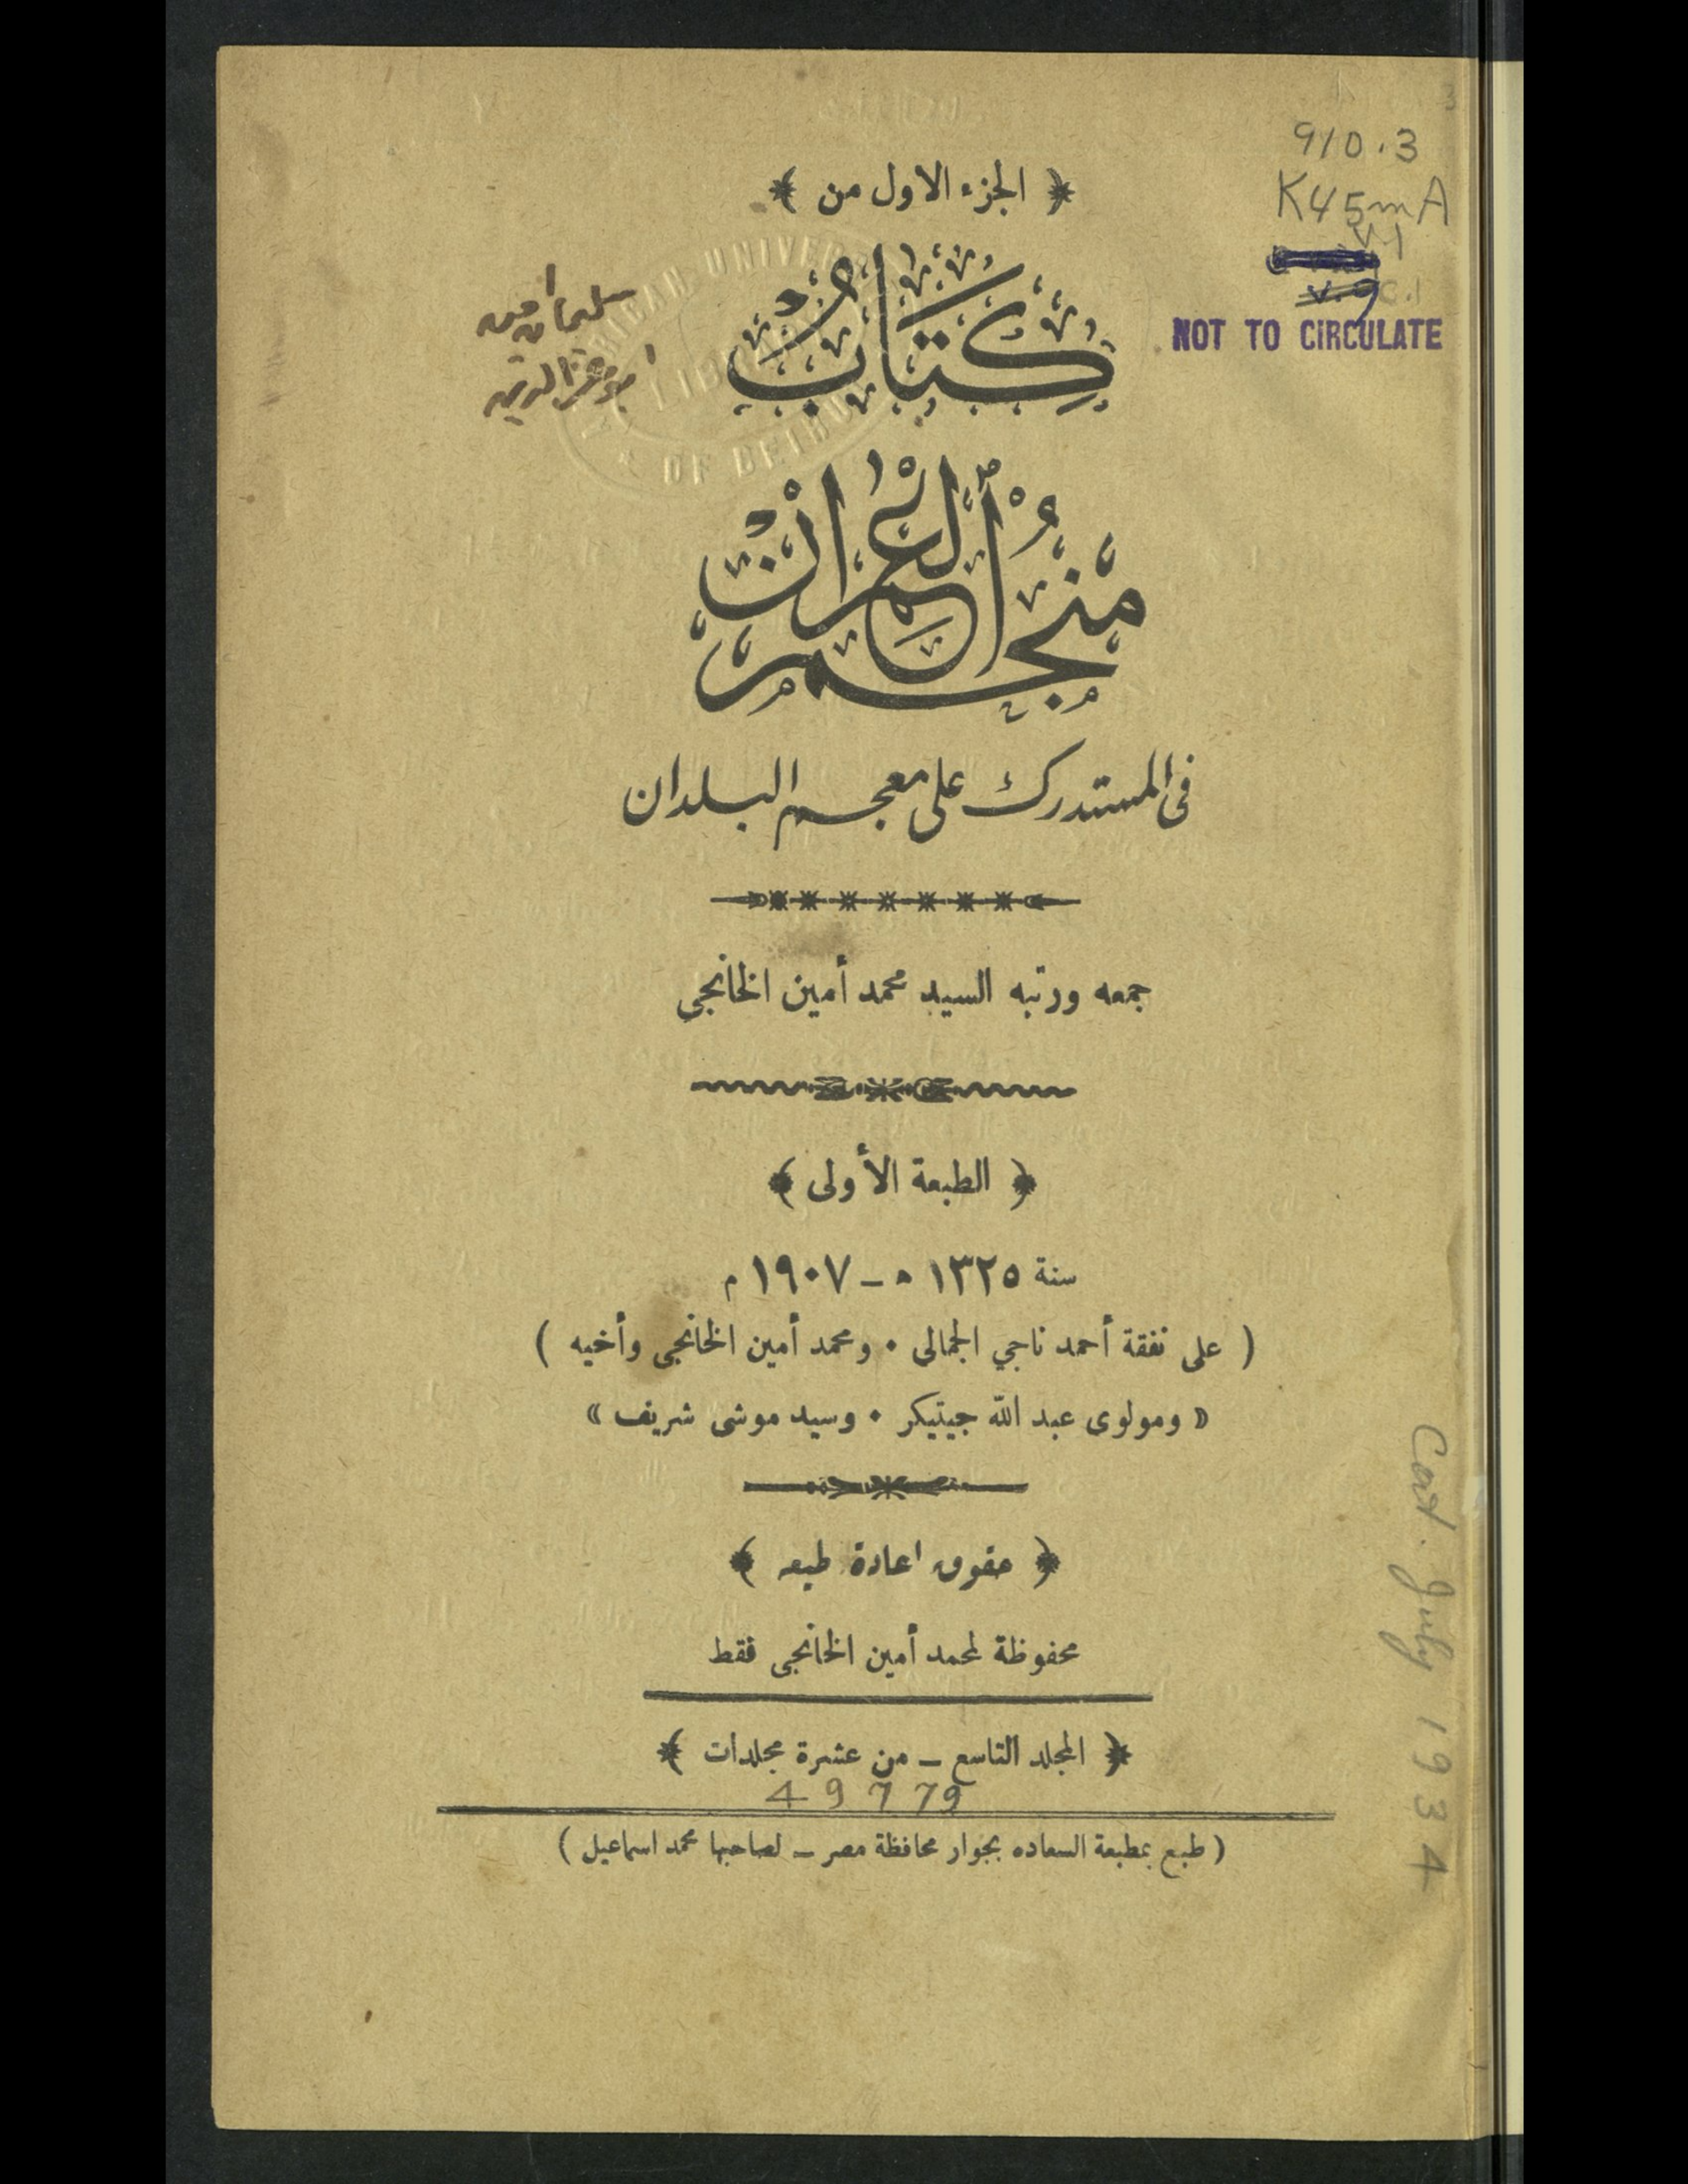 910.3
K45mA
v.1
v.9
c.1
NOT TO CIRCULATE
﴿ الجزء الاول من ﴾
AMERICAN UNIVERSITY
LIBRARY
OF BEIRUT
كِتَابُ
مُنْجَمُ الْعُمْرَانْ
فى المستدرك على معجم البلدان
جمعه ورتبه السيد محمد أمين الخانجي
﴿ الطبعة الأولى ﴾
سنة ١٣٢٥ ه – ١٩٠٧ م
( على نفقة أحمد ناجي الجمالى • ومحمد أمين الخانجى وأخيه )
« ومولوى عبد الله جيتيكر • وسيد موشى شريف »
﴿ حقوق اعادة طبعه ﴾
محفوظة لمحمد أمين الخانجى فقط
﴿ المجلد التاسع – من عشرة مجلدات ﴾
49779
( طبع بمطبعة السعاده بجوار محافظة مصر – لصاحبها محمد اسماعيل )
Cat. July 1934